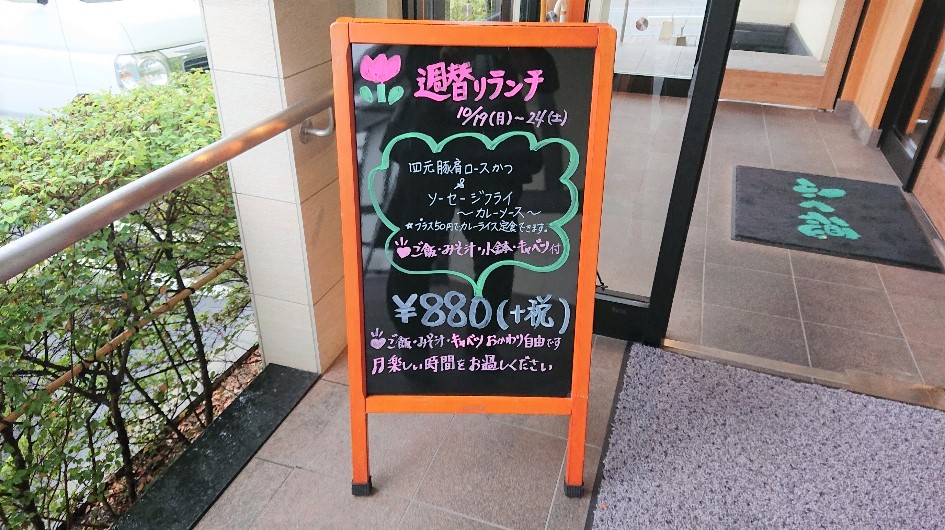 週替りランチ
10/19(月)～24(土)
四元豚肩ロースかつ
&
ソーセージフライ
～カレーソース～
☆プラス50円でカレーライス定食できます。
ご飯・みそ汁・小鉢・キャベツ付
¥880(+税)
ご飯・みそ汁・キャベツ おかわり自由です
楽しい時間をお過しください